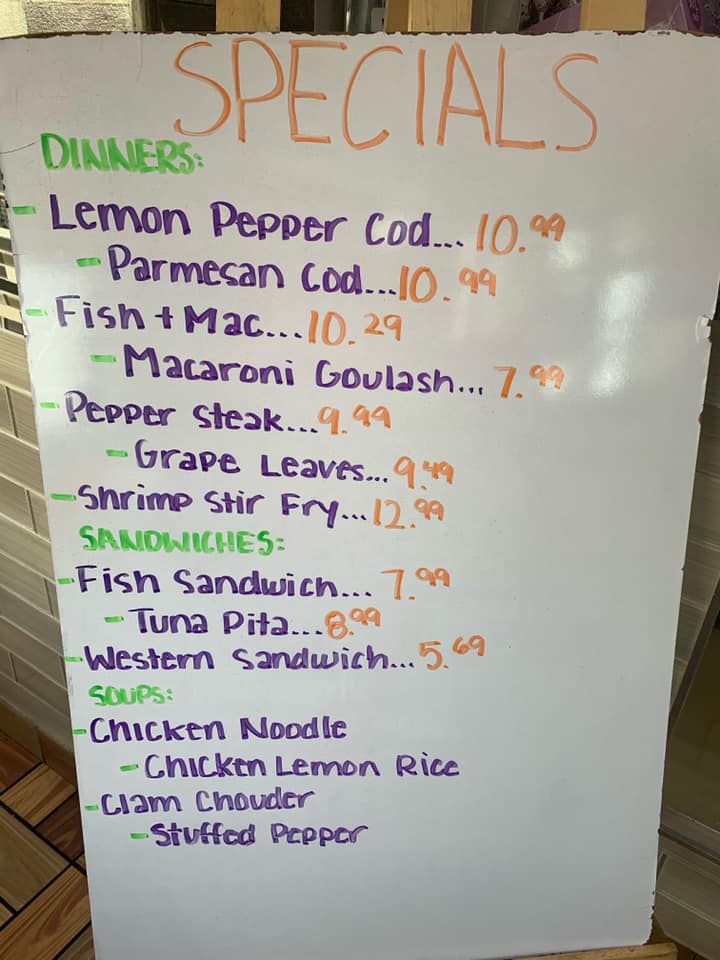 SPECIALS
DINNERS:
- Lemon Pepper Cod... 10.99
- Parmesan Cod...10.99
- Fish + Mac...10.29
- Macaroni Goulash... 7.99
- Pepper Steak...9.99
- Grape Leaves... 9.49
- Shrimp Stir Fry...12.99
SANDWICHES:
- Fish Sandwich... 7.99
- Tuna Pita...8.99
- Western Sandwich...5.69
SOUPS:
- Chicken Noodle
- Chicken Lemon Rice
- Clam Chouder
- Stuffed Pepper